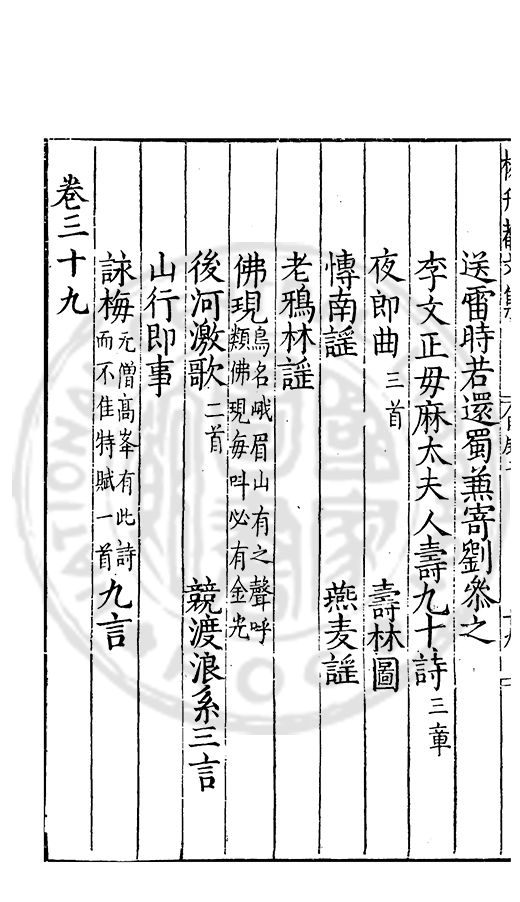 送雷時若還蜀兼寄劉叅之
李文正毋麻太夫人壽九十詩三章
夜郎曲三首 壽林圖
慱南謡 燕麦謡
老鴉林謡
佛現鳥名峨眉山有之聲呼
類佛現每呌必有金光
後河激歌二首 競渡浪系三言
山行即事
詠梅元僧髙峯有此詩
而不佳特賦一首九言
卷三十九